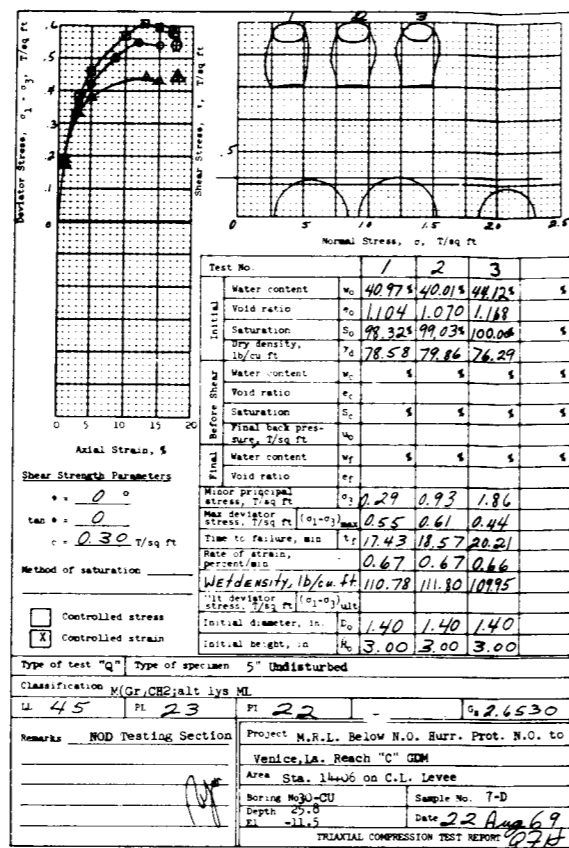 Deviator Stress, σ1 - σ3, T/sq ft
.6
.5
.4
.3
.2
.1
0
0 5 10 15 20
Axial Strain, %
Shear Stress, τ, T/sq ft
.5
1 2 3
0 .5 1.0 1.5 2.0 2.5
Normal Stress, σ, T/sq ft
Shear Strength Parameters
φ = 0 °
tan φ = 0
c = 0.30 T/sq ft
Method of saturation
Controlled stress
X Controlled strain
Test No. 1 2 3
Initial
Water content w0 40.97% 40.01% 44.12% %
Void ratio e0 1.104 1.070 1.168
Saturation S0 98.32% 99.03% 100.00% %
Dry density, lb/cu ft γd 78.58 79.86 76.29
Before Shear
Water content wc % % % %
Void ratio ec
Saturation Sc % % % %
Final back pressure, T/sq ft u0
Final
Water content wf % % % %
Void ratio ef
Minor principal stress, T/sq ft σ3 0.29 0.93 1.86
Max deviator stress, T/sq ft (σ1-σ3)max 0.55 0.61 0.44
Time to failure, min tf 17.43 18.57 20.21
Rate of strain, percent/min 0.67 0.67 0.66
Wet density, lb/cu. ft. 110.78 111.80 109.95
Ult deviator stress, T/sq ft (σ1-σ3)ult
Initial diameter, in. D0 1.40 1.40 1.40
Initial height, in H0 3.00 3.00 3.00
Type of test "Q" Type of specimen 5" Undisturbed
Classification M(Gr,CH2;alt lys ML
LL 45 PL 23 PI 22 - Gs 2.6530
Remarks NOD Testing Section
Project M.R.L. Below N.O. Hurr. Prot. N.O. to
Venice, La. Reach "C" GDM
Area Sta. 14+06 on C.L. Levee
Boring No 30-CU Sample No. 7-D
Depth 25.8
El -11.5 Date 22 Aug 69
TRIAXIAL COMPRESSION TEST REPORT